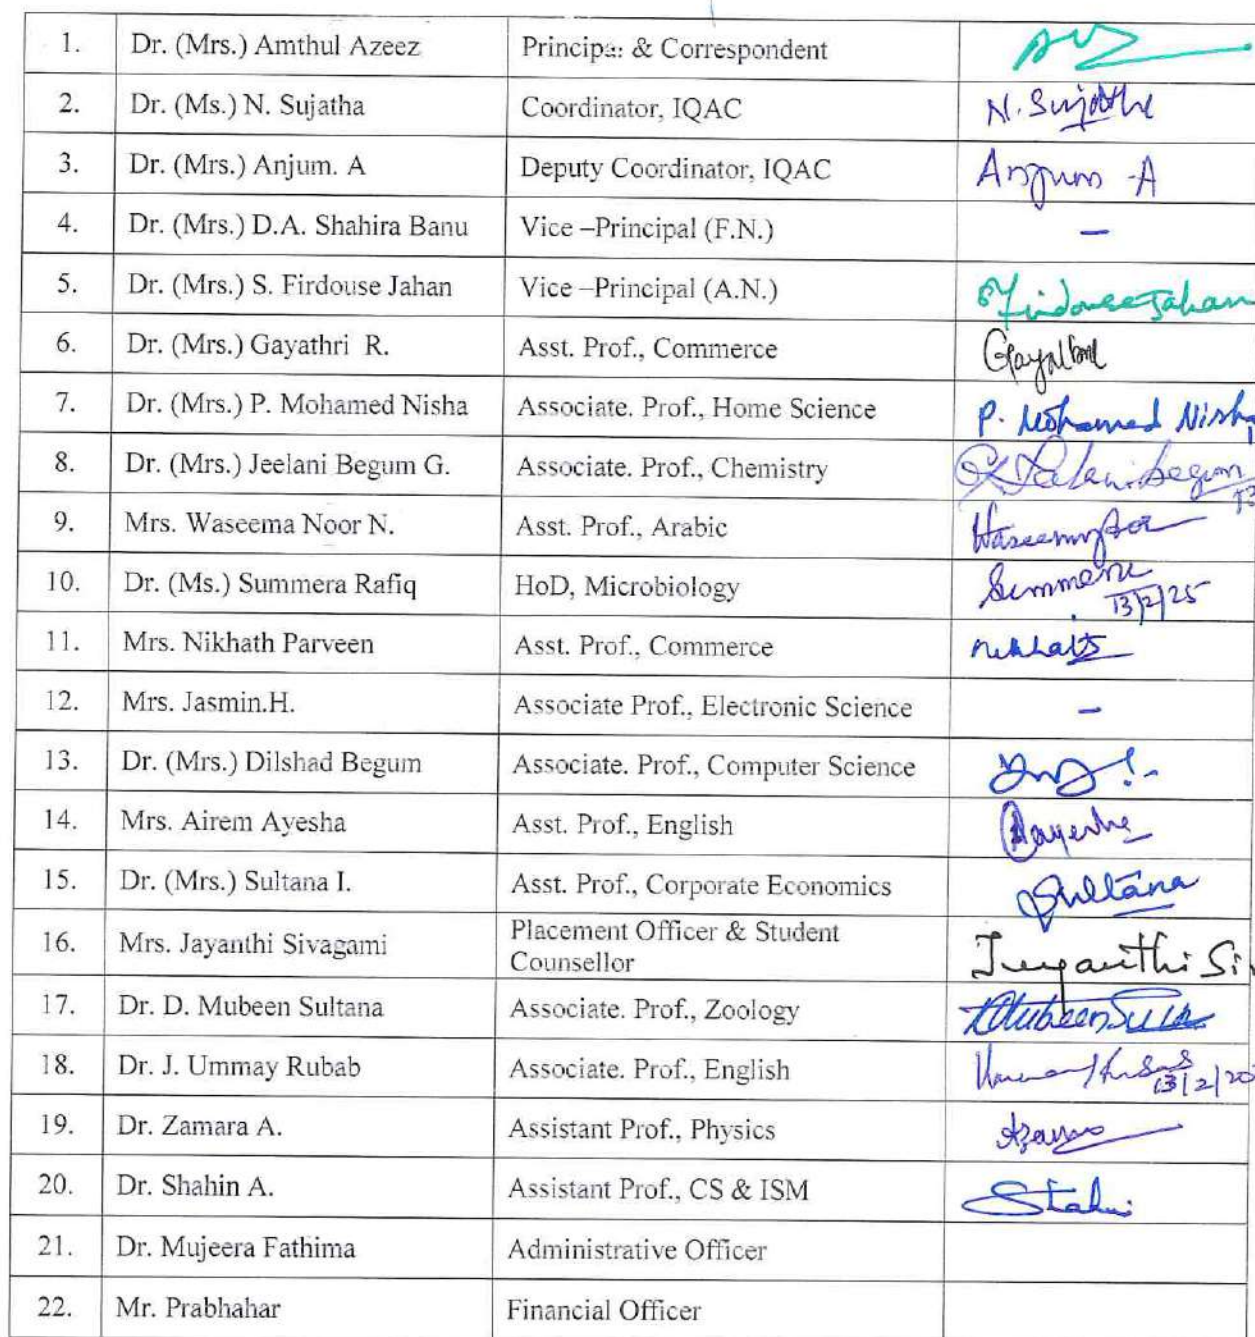 1. Dr. (Mrs.) Amthul Azeez Principal & Correspondent
2. Dr. (Ms.) N. Sujatha Coordinator, IQAC N. Sujatha
3. Dr. (Mrs.) Anjum. A Deputy Coordinator, IQAC Anjum -A
4. Dr. (Mrs.) D.A. Shahira Banu Vice –Principal (F.N.) –
5. Dr. (Mrs.) S. Firdouse Jahan Vice –Principal (A.N.) S Firdouse Jahan
6. Dr. (Mrs.) Gayathri R. Asst. Prof., Commerce Gayathri
7. Dr. (Mrs.) P. Mohamed Nisha Associate. Prof., Home Science P. Mohamed Nisha
8. Dr. (Mrs.) Jeelani Begum G. Associate. Prof., Chemistry
9. Mrs. Waseema Noor N. Asst. Prof., Arabic
10. Dr. (Ms.) Summera Rafiq HoD, Microbiology Summera
13/2/25
11. Mrs. Nikhath Parveen Asst. Prof., Commerce Nikhath
12. Mrs. Jasmin.H. Associate Prof., Electronic Science –
13. Dr. (Mrs.) Dilshad Begum Associate. Prof., Computer Science
14. Mrs. Airem Ayesha Asst. Prof., English Aayesha
15. Dr. (Mrs.) Sultana I. Asst. Prof., Corporate Economics Sultana
16. Mrs. Jayanthi Sivagami Placement Officer & Student
Counsellor Jayanthi Si
17. Dr. D. Mubeen Sultana Associate. Prof., Zoology
18. Dr. J. Ummay Rubab Associate. Prof., English
13/2/20
19. Dr. Zamara A. Assistant Prof., Physics
20. Dr. Shahin A. Assistant Prof., CS & ISM Shahin
21. Dr. Mujeera Fathima Administrative Officer
22. Mr. Prabhahar Financial Officer